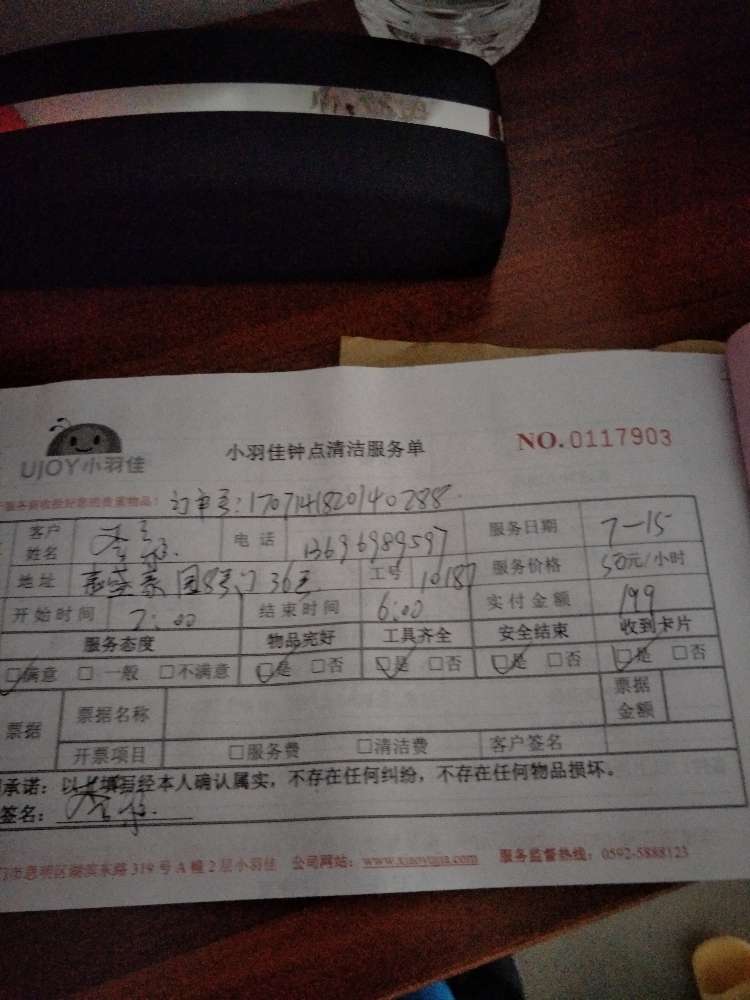 UJOY小羽佳
小羽佳钟点清洁服务单
NO.0117903
服务前请收拾好您的贵重物品:
订单号:1707141820140288
客户姓名 电话 13696989597 服务日期 7-15
地址 园8号 36 工号 10187 服务价格 50元/小时
开始时间 2:00 结束时间 6:00 实付金额 199
服务态度 物品完好 工具齐全 安全结束 收到卡片
□满意 □一般 □不满意 □是 □否 □是 □否 □是 □否 □是 □否
票据 票据名称 票据金额
开票项目 □服务费 □清洁费 客户签名
承诺:以上填写经本人确认属实,不存在任何纠纷,不存在任何物品损坏。
签名:
门市思明区湖滨东路319号A幢2层小羽佳 公司网站:www.xiaoyujia.com 服务监督热线:0592-5888123